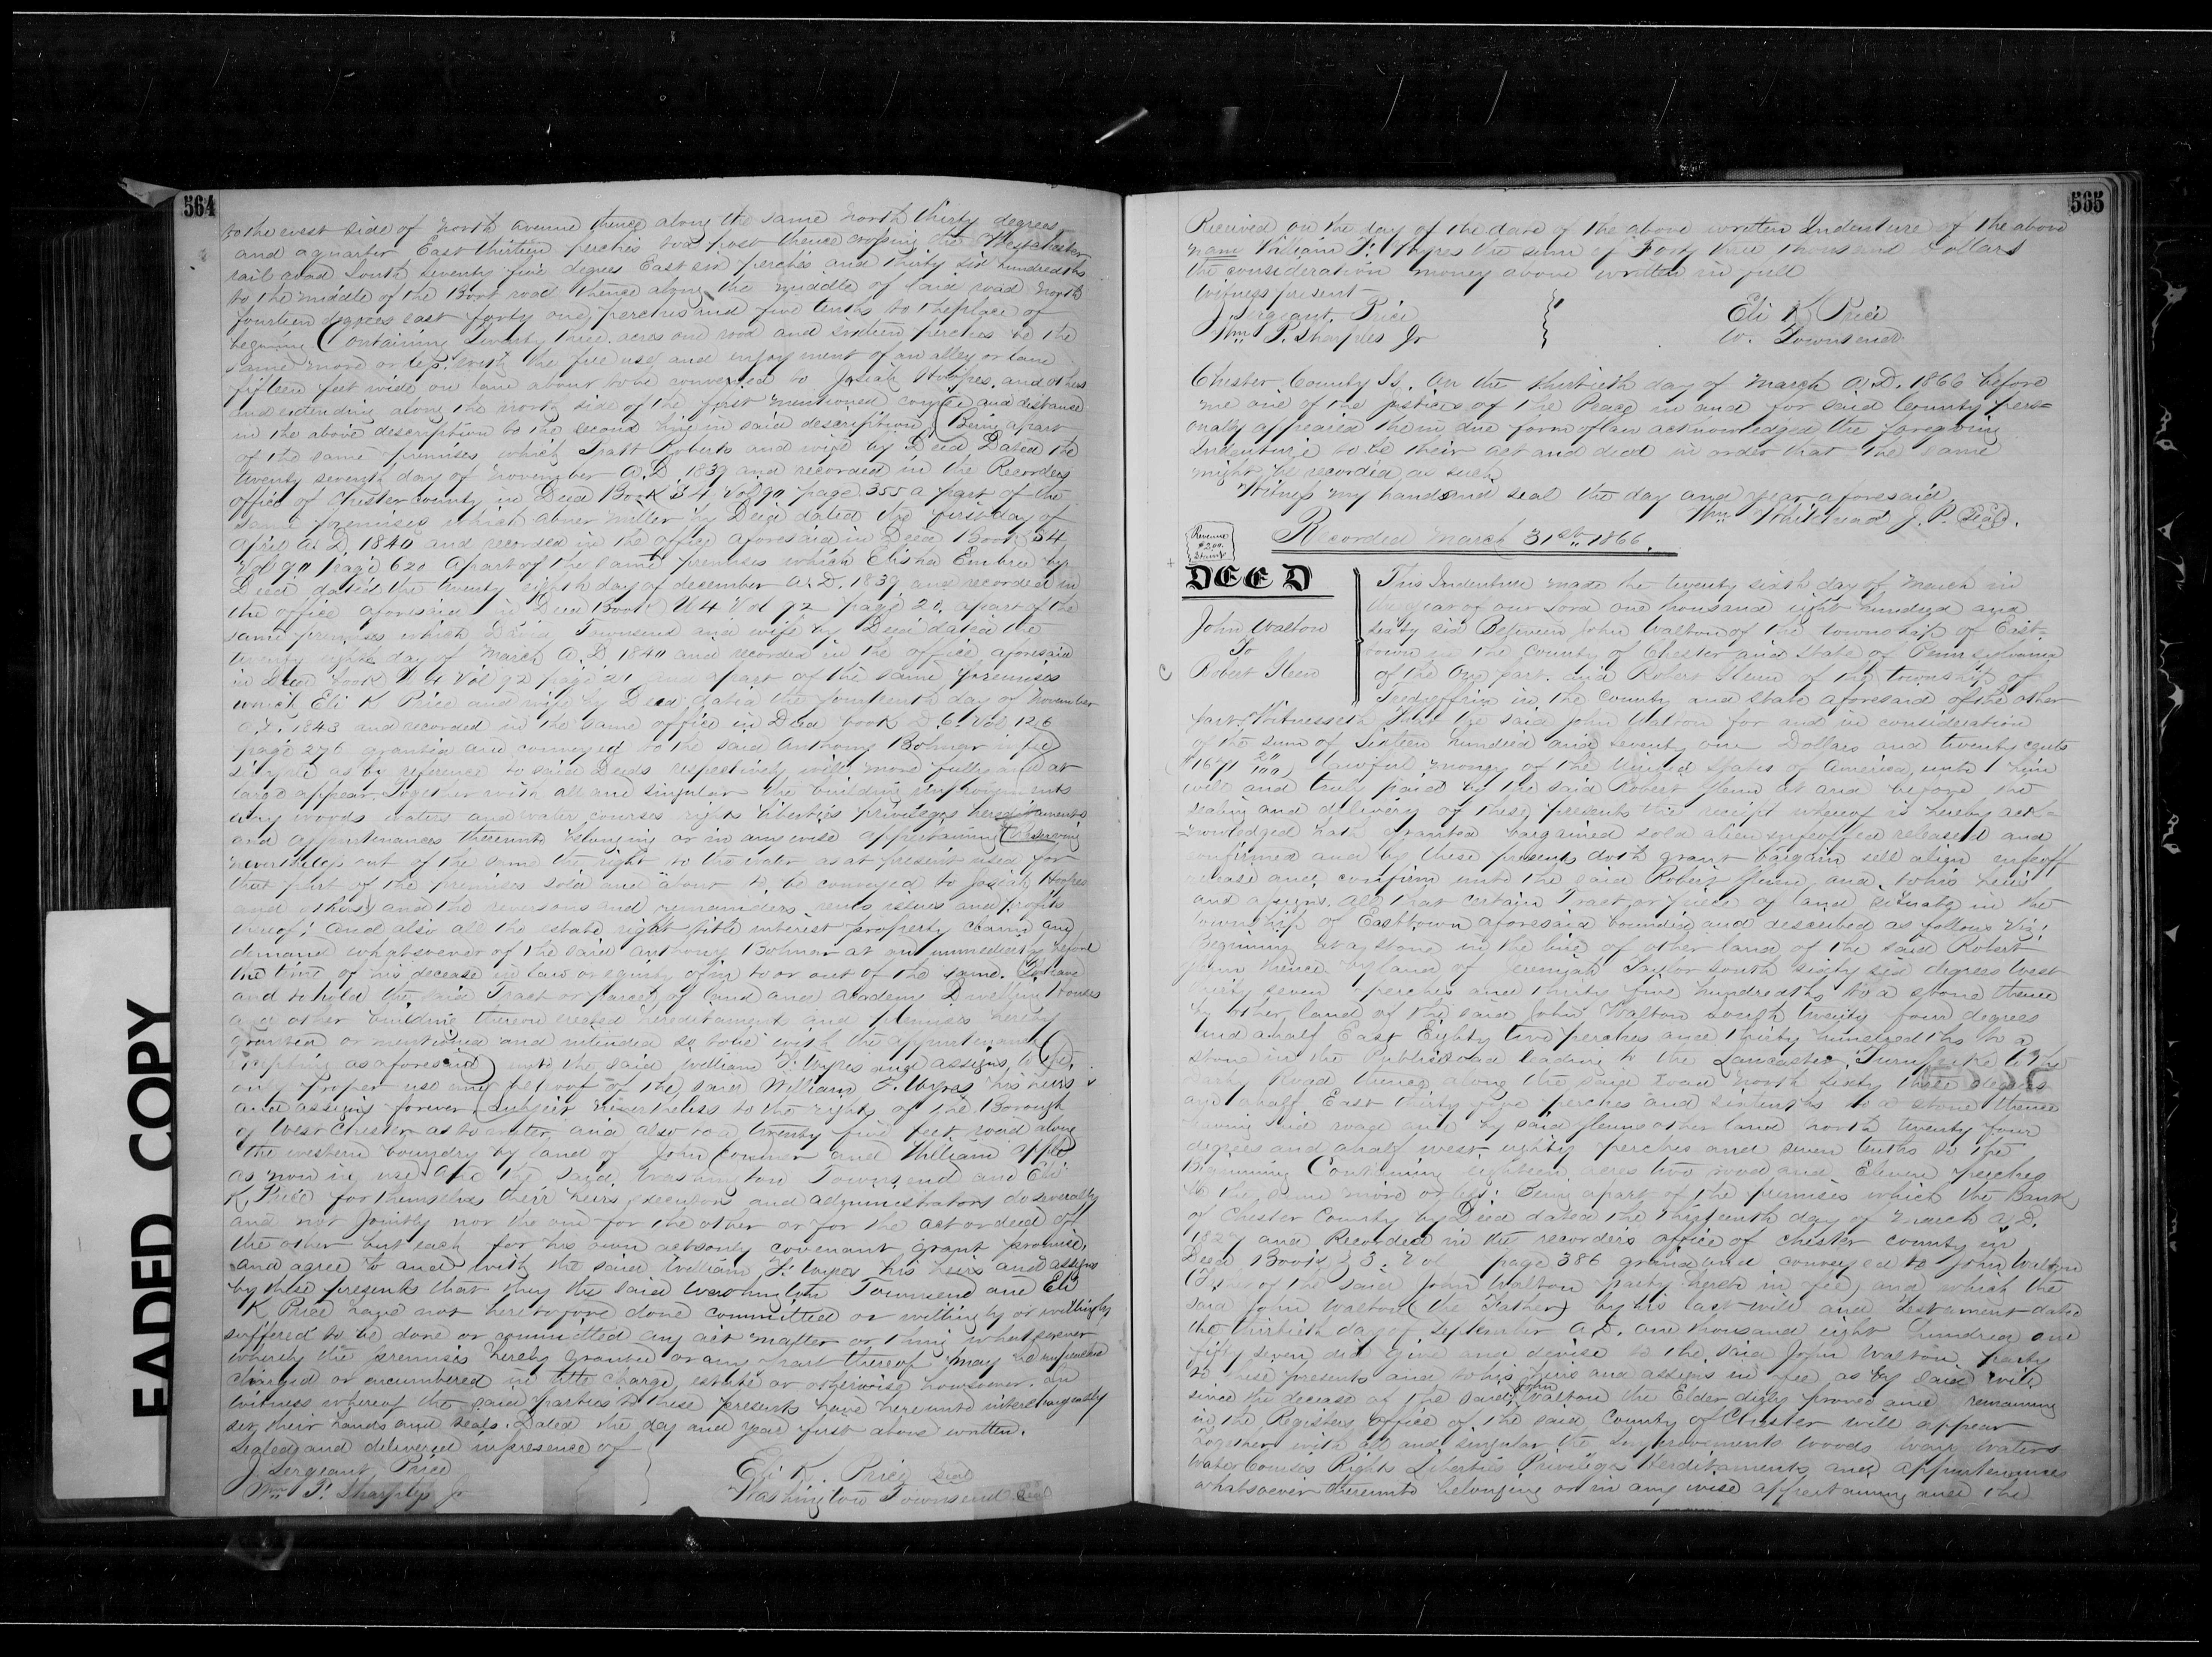 564
to the east side of north avenue thence along the same north thirty degrees
and a quarter East thirteen perches to a post thence crossing the Westchester
rail road South seventy five degrees East six perches and thirty six hundredths
to the middle of the Boot road thence along the middle of said road North
fourteen degrees east forty one perches and five tenths to the place of
beginning Containing twenty three acres one rood and sixteen perches be the
same more or less with the free use and enjoyment of an alley or lane
fifteen feet wide on land about to be conveyed to Josiah Hoopes and others
and extending along the north side of the first mentioned course and distance
in the above description to the second line in said description Being a part
of the same premises which Pratt Roberts and wife by Deed Dated the
twenty seventh day of November A.D. 1839 and recorded in the Recorders
office of Chester county in Deed Book S 4 Vol 90 page 355 a part of the
same premises which abner Miller by Deed dated the first day of
April A.D. 1840 and recorded in the office aforesaid in Deed Book S 4
Vol 90 page 620 a part of the same premises which Elisha Embree by
Deed dated the twenty eighth day of december A.D. 1839 and recorded in
the office aforesaid in Deed Book U 4 Vol 92 page 20, a part of the
same premises which David Townsend and wife by Deed dated the
twenty eighth day of March A.D. 1840 and recorded in the office aforesaid
in Deed book U 4 Vol 92 page 21 and a part of the same premises
which Eli K Price and wife by Deed dated the fourteenth day of November
A.D. 1843 and recorded in the same office in Deed book D. 6. Vol 126
page 276 granted and conveyed to the said Anthony Bolmar in fee
simple as by reference to said Deeds respectively will more fully and at
large appear. Together with all and singular the building improvements
way woods waters and water courses rights liberties privileges hereditaments
and appurtenances thereunto belonging or in any wise appertaining (Reserving
nevertheless out of the same the right to the water as at present used for
that part of the premises sold and about to be conveyed to Josiah Hoopes
and others) and the reversions and remainders rents issues and profits
thereof; and also all the estate right title interest property claim and
demand whatsoever of the said Anthony Bolmar at and immediately before
the time of his decease in law or equity of in to or out of the same. To have
and to hold the said Tract or parcel of land and academy Dwelling Houses
and other building thereon erected hereditament and premises hereby
granted or mentioned and intended so to be with the appurtenances
(Excepting as aforesaid) unto the said William F. Wyers and assigns, to the
only proper use and behoof of the said William F. Wyers his heirs
and assigns forever. Subject nevertheless to the rights of the Borough
of West Chester as to water, and also to a twenty five feet road along
the western boundry by land of John and William Apple
as now in use And the said Washington Townsend and Eli
K. Price for themselves their heirs executors and administrators do severally
and not jointly nor the one for the other or for the act or deed of
the other but each for his own acts only covenant grant promise
and agree to and with the said William F. Wyers his heirs and assigns
by these presents that they the said Washington Townsend and Eli
K. Price have not heretofore done committed or willingly or willingly
suffered to be done or committed any act matter or thing whatsoever
whereby the premises hereby granted or any part thereof may be impeached
charged or encumbered in title charge, estate or otherwise howsoever. In
witness whereof the said parties to these presents have hereunto interchangeably
set their hands and seals. Dated the day and year first above written.
Sealed and delivered in presence of
J. Sergeant Price
Wm. P. Sharples Jr
Eli K. Price Seal
Washington Townsend Seal
EADED COPY
565
Received on the day of the date of the above written Indenture of the above
nam William F. Wyers the sum of Forty three thousand Dollars
the consideration money above written in full
Witness present
J Sergeant Price
Wm. P. Sharples Jr
Eli K Price
W. Townsend
Chester County Ss. On the thirtieth day of March A.D. 1866 before
me one of the justices of the Peace in and for said County pers=
onaly appeared them in due form of law acknowledged the foregoing
Indenture to be their act and deed in order that the same
might be recorded as such
Witness my hand and seal the day and year aforesaid.
Wm. Whitehead J. P. Seal.
Recorded March 31st 1866.
Revenue
$2.00
Stamp
DEED
John Walton
To
Robert Glenn
This Indenture made the twenty sixth day of March in
the year of our Lord one thousand eight hundred and
sixty six Between John Walton of the township of East=
town in the County of Chester and State of Pennsylvania
of the One part. and Robert Glenn of the township of
Tredyffrin in the County and State aforesaid of the other
part. Witnesseth That the said John Walton for and in consideration
of the sum of Sixteen hundred and seventy one Dollars and twenty cents
($1671 20/100) lawful money of the United States of America, unto him
well and truly paid by the said Robert Glenn at and before the
sealing and delivery of these presents the receipt whereof is hereby ack=
nowledged hath granted bargained sold alien enfeoffed released and
confirmed and by these presents doth grant bargain sell alien enfeoff
release and confirm unto the said Robert Glenn and to his heirs
and assigns. All that certain Tract or piece of land situate in the
township of Easttown aforesaid bounded and described as follows Viz:
Beginning at a stone in the line of other land of the said Robert
Glenn thence by land of Jeremiah Taylor South sixty six degrees West
thirty seven perches and thirty five hundredths to a stone thence
by other land of the said John Walton South twenty four degrees
and a half East Eighty two perches and thirty hundredths to a
stone in the Public road leading to the Lancaster Turnpike to the
Road thence along the said road North sixty three degrees
and a half East thirty five perches and six tenths to a stone thence
leaving said road and by said Glenns other land north twenty four
degrees and a half west eighty perches and seven tenths to the
Beginning Containing eighteen acres two rood and Eleven perches
be the same more or less: Being a part of the premises which the Bank
of Chester County by Deed dated the thirteenth day of March A.D.
and Recorded in the recorders office of Chester County in
Deed Book 3. Vol page 386 grant and conveyed to John Walton
(Father of the said John Walton party hereto in fee) and which the
said John Walton (the Father) by his last will and Testament dated
the thirtieth day of September A.D. one thousand eight hundred and
fifty seven did give and devise to the said John Walton party
to these presents and to his Heirs and assigns in fee as by said will
since the decease of the said John Walton the Elder duly proved and remaining
in the Registers office of the said County of Chester will appear
Together with all and singular the Improvements Woods ways waters
Water Courses Rights Liberties Privileges Herditaments and appurtenances
whatsoever thereunto belonging or in any wise appertaining and the